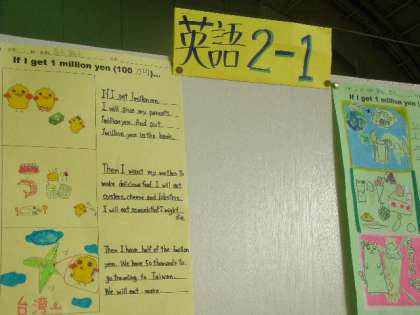 英語 2-1
If I get 1 million yen (100万円)...
If I get 1million yen,
I will give my parents
1million yen. And put
1million yen in the bank.
Then I want my mother to
make delicious food. I will eat
oysters, cheese and lobsters.
I will eat so much that I might
die.
Then I have half of the million
yen. We have 50 thousands to
go traveling to Taiwan.
We will eat more
台湾
If I get 1 million yen